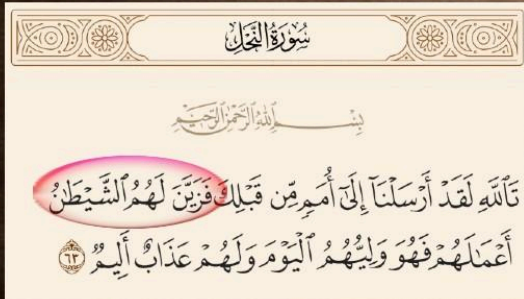 سُورَةُ النَّحۡلِ
بِسۡمِ ٱللَّهِ ٱلرَّحۡمَٰنِ ٱلرَّحِيمِ
تَٱللَّهِ لَقَدۡ أَرۡسَلۡنَآ إِلَىٰٓ أُمَمٖ مِّن قَبۡلِكَ فَزَيَّنَ لَهُمُ ٱلشَّيۡطَٰنُ
أَعۡمَٰلَهُمۡ فَهُوَ وَلِيُّهُمُ ٱلۡيَوۡمَ وَلَهُمۡ عَذَابٌ أَلِيمٞ ٦٣